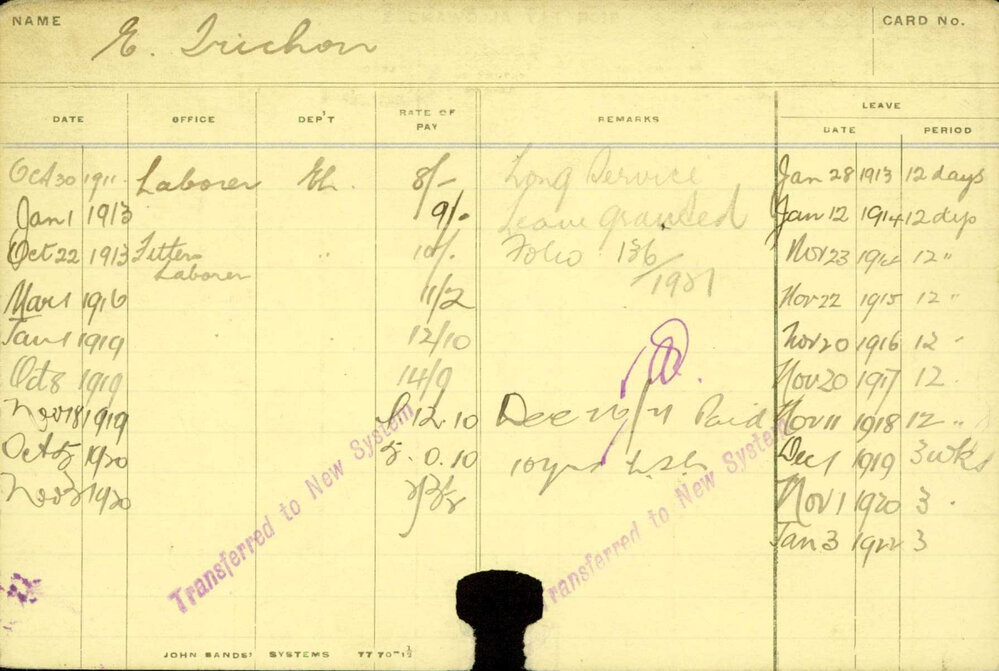 NAME E. Trichon CARD No.
DATE OFFICE DEP'T RATE OF PAY REMARKS LEAVE
DATE PERIOD
Oct 30 1911 Laborer El. 8/- Long Service Jan 28 1913 12 days
Jan 1 1913 9/- Leave granted Jan 12 1914 12 dys
Oct 22 1913 Fitters Laborer " 10/- Folio 136/1921 Nov 23 1914 12 "
Mar 1 1916 11/2 Nov 22 1915 12 "
Jan 1 1919 12/10 Nov 20 1916 12 "
Oct 8 1919 14/9 Nov 20 1917 12 "
Nov 18 1919 12.10 Dec Paid Nov 11 1918 12 "
Oct 1920 5.0.10 10 yrs Dec 1 1919 3 wks
Nov 1920 Nov 1 1920 3 "
Jan 3 1922 3
Transferred to New System
Transferred to New System
JOHN SANDS' SYSTEMS 77 70-1½